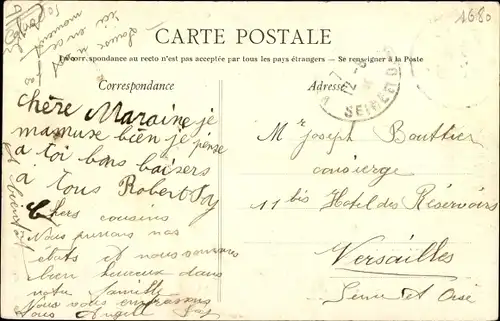 1680
CARTE POSTALE
La correspondance au recto n'est pas acceptée par tous les pays étrangers — Se renseigner à la Poste
Correspondance
Adresse
chère Maraine je
mamuse bien je pense
a toi bons baisers
à tous Robert
Chers cousins
Nous pensons
et nous sommes
bien heureux dans
notre famille
Nous vous embrassons
tous
a bientôt
Mr Joseph Bouttier
concierge
11 bis Hotel des Réservoirs
Versailles
Seine et Oise